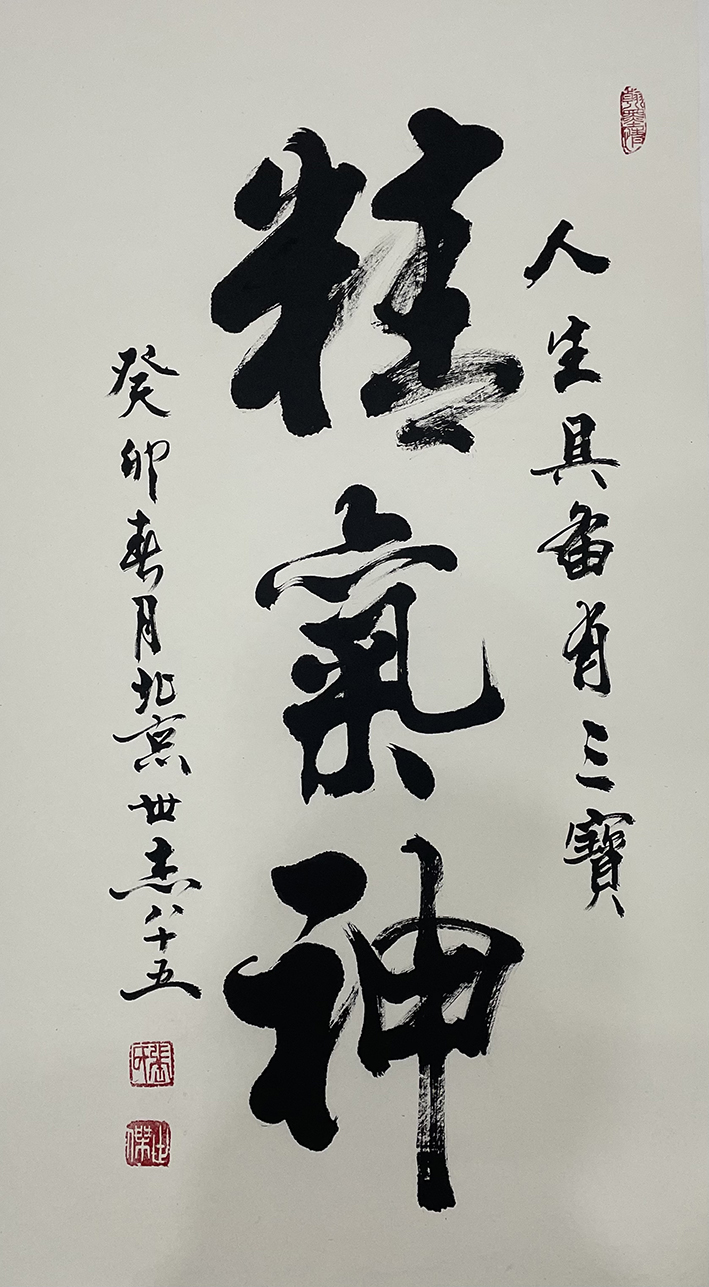 人生具备有三寶
精氣神
癸卯春月北京世杰八十五